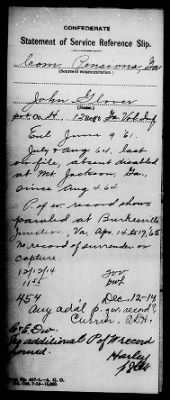 CONFEDERATE
Statement of Service Reference Slip.
Com. Pensions, Ga
(Source of communication.)
John Glover
(Name.)
pvt. Co. H. 12 Ga Vol Inf
Enl June 9 '61.
July & Aug 64, last
on file, absent disabled
at Mt. Jackson, Va.,
since Aug 4 64.
P of w record shows
paroled at Burkeville
Junction, Va, Apr. 14 to 17, '65
No record of surrender or
capture.
12/12/14
454 Dec. 12-14
Any add'l p. of w. record?
Currin, S.H.
No additional P of W record
found. Harley